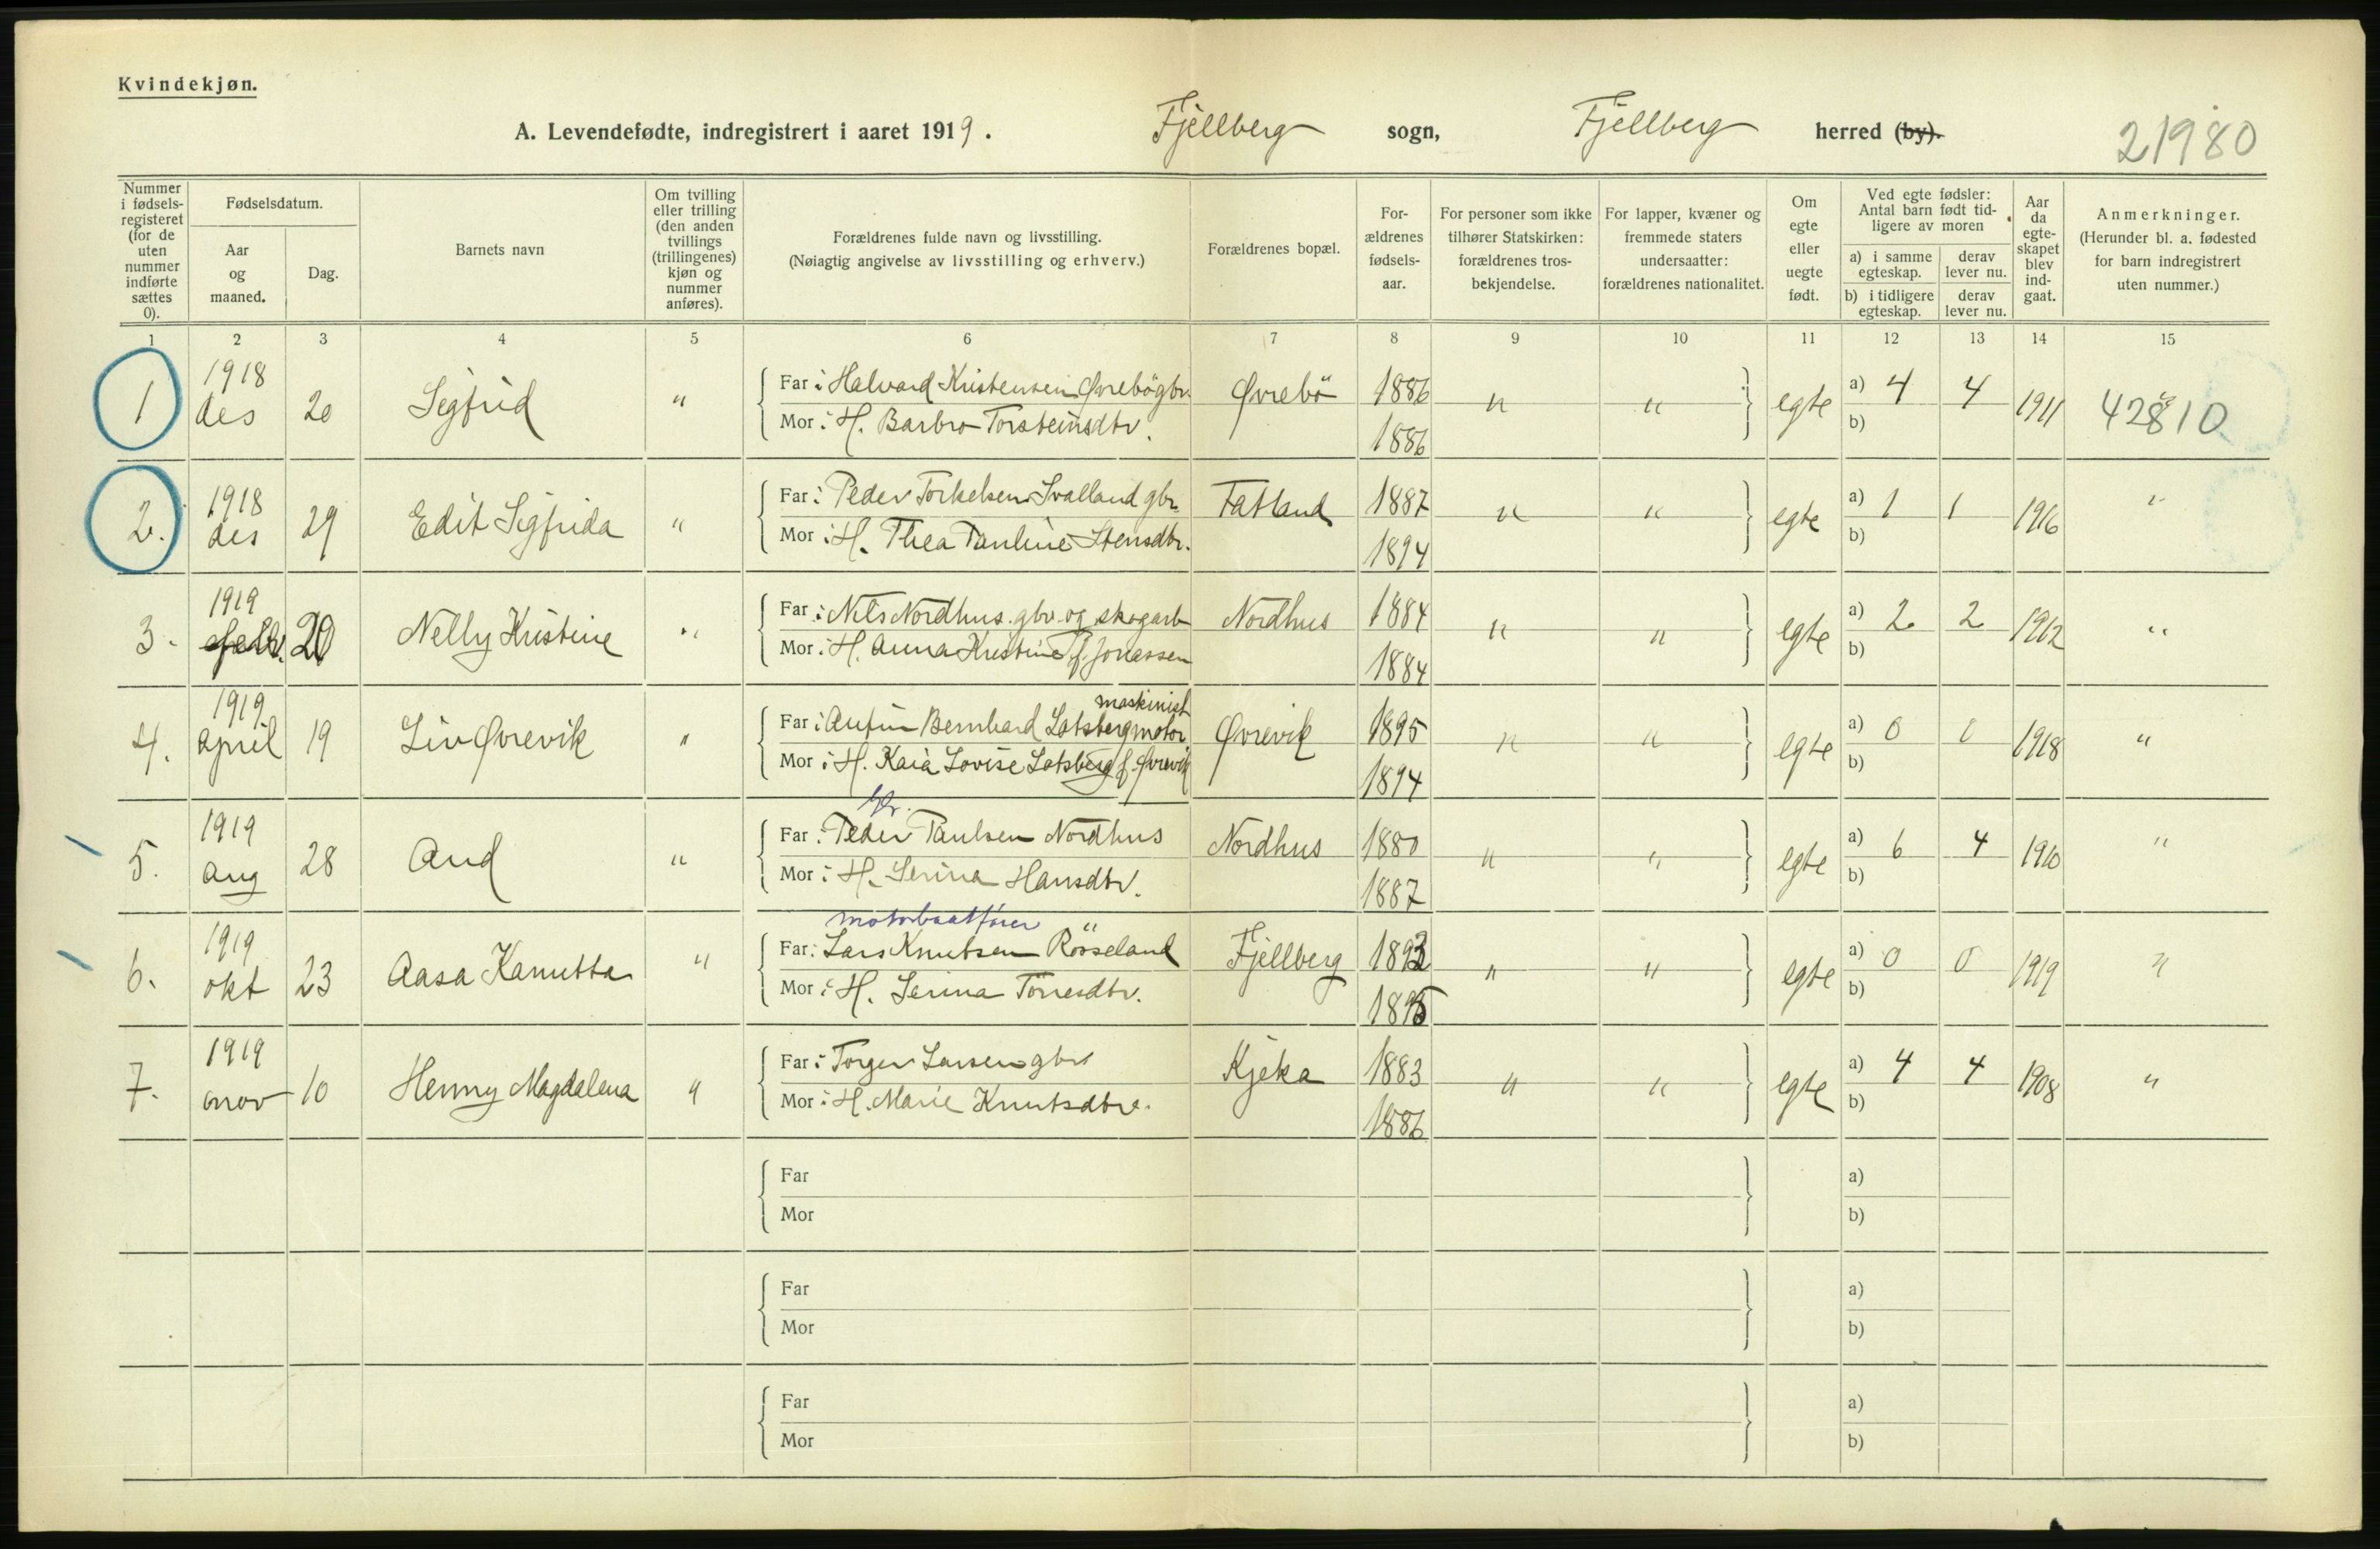 Kvindekjøn.
A. Levendefødte, indregistrert i aaret 1919. Fjellberg sogn, Fjellberg herred (by).
21980
Nummer i fødselsregisteret (for de uten nummer indførte sættes 0).
Fødselsdatum.
Aar og maaned.
Dag.
Barnets navn
Om tvilling eller trilling (den anden tvillings (trillingenes) kjøn og nummer anføres).
Forældrenes fulde navn og livsstilling.
(Nøiagtig angivelse av livsstilling og erhverv.)
Forældrenes bopæl.
Forældrenes fødselsaar.
For personer som ikke tilhører Statskirken: forældrenes trosbekjendelse.
For lapper, kvæner og fremmede staters undersaatter: forældrenes nationalitet.
Om egte eller uegte født.
Ved egte fødsler: Antal barn født tidligere av moren
a) i samme egteskap.
derav lever nu.
b) i tidligere egteskap.
derav lever nu.
Aar da egteskapet blev indgaat.
Anmerkninger.
(Herunder bl. a. fødested for barn indregistrert uten nummer.)
1 2 3 4 5 6 7 8 9 10 11 12 13 14 15
1 1918 des 20 Sigfrid " Far: Halvard Kristensen Øvrebö gbr. Øvrebö 1886 " " egte a) 4 4 1911 42810
Mor: H. Barbro Torsteinsdtr. 1886 b)
2. 1918 des 29 Edit Sigfrida " Far: Peder Torkelsen Svalland gbr. Fatland 1887 " " egte a) 1 1 1916 "
Mor: H. Thea Pauline Stensdtr. 1894 b)
3. 1919 febr. 20 Nelly Kristine " Far: Nils Nordhus gbr. og skogarb Nordhus 1884 " " egte a) 2 2 1912 "
Mor: H. Anna Kristine f. Jonassen 1884 b)
maskinist
4. 1919 april 19 Liv Øvrevik " Far: Anfin Bernhard Lotsberg motor Øvrevik 1895 " " egte a) 0 0 1918 "
Mor: H. Kaia Lovise Lotsberg f. Øvrevik 1894 b)
gbr.
5. 1919 aug 28 Aud " Far: Peder Paulsen Nordhus Nordhus 1880 " " egte a) 6 4 1910 "
Mor: H. Serina Hansdtr. 1887 b)
motorbaatfører
6. 1919 okt 23 Aasa Kanutta " Far: Lars Knutsen Rösseland Fjellberg 1893 " " egte a) 0 0 1919 "
Mor: H. Serina Törresdtr. 1895 b)
7. 1919 nov 10 Henny Magdalena " Far: Torger Larsen gbr Kjeka 1883 " " egte a) 4 4 1908 "
Mor: H. Marie Knutsdtr. 1886 b)
Far a)
Mor b)
Far a)
Mor b)
Far a)
Mor b)